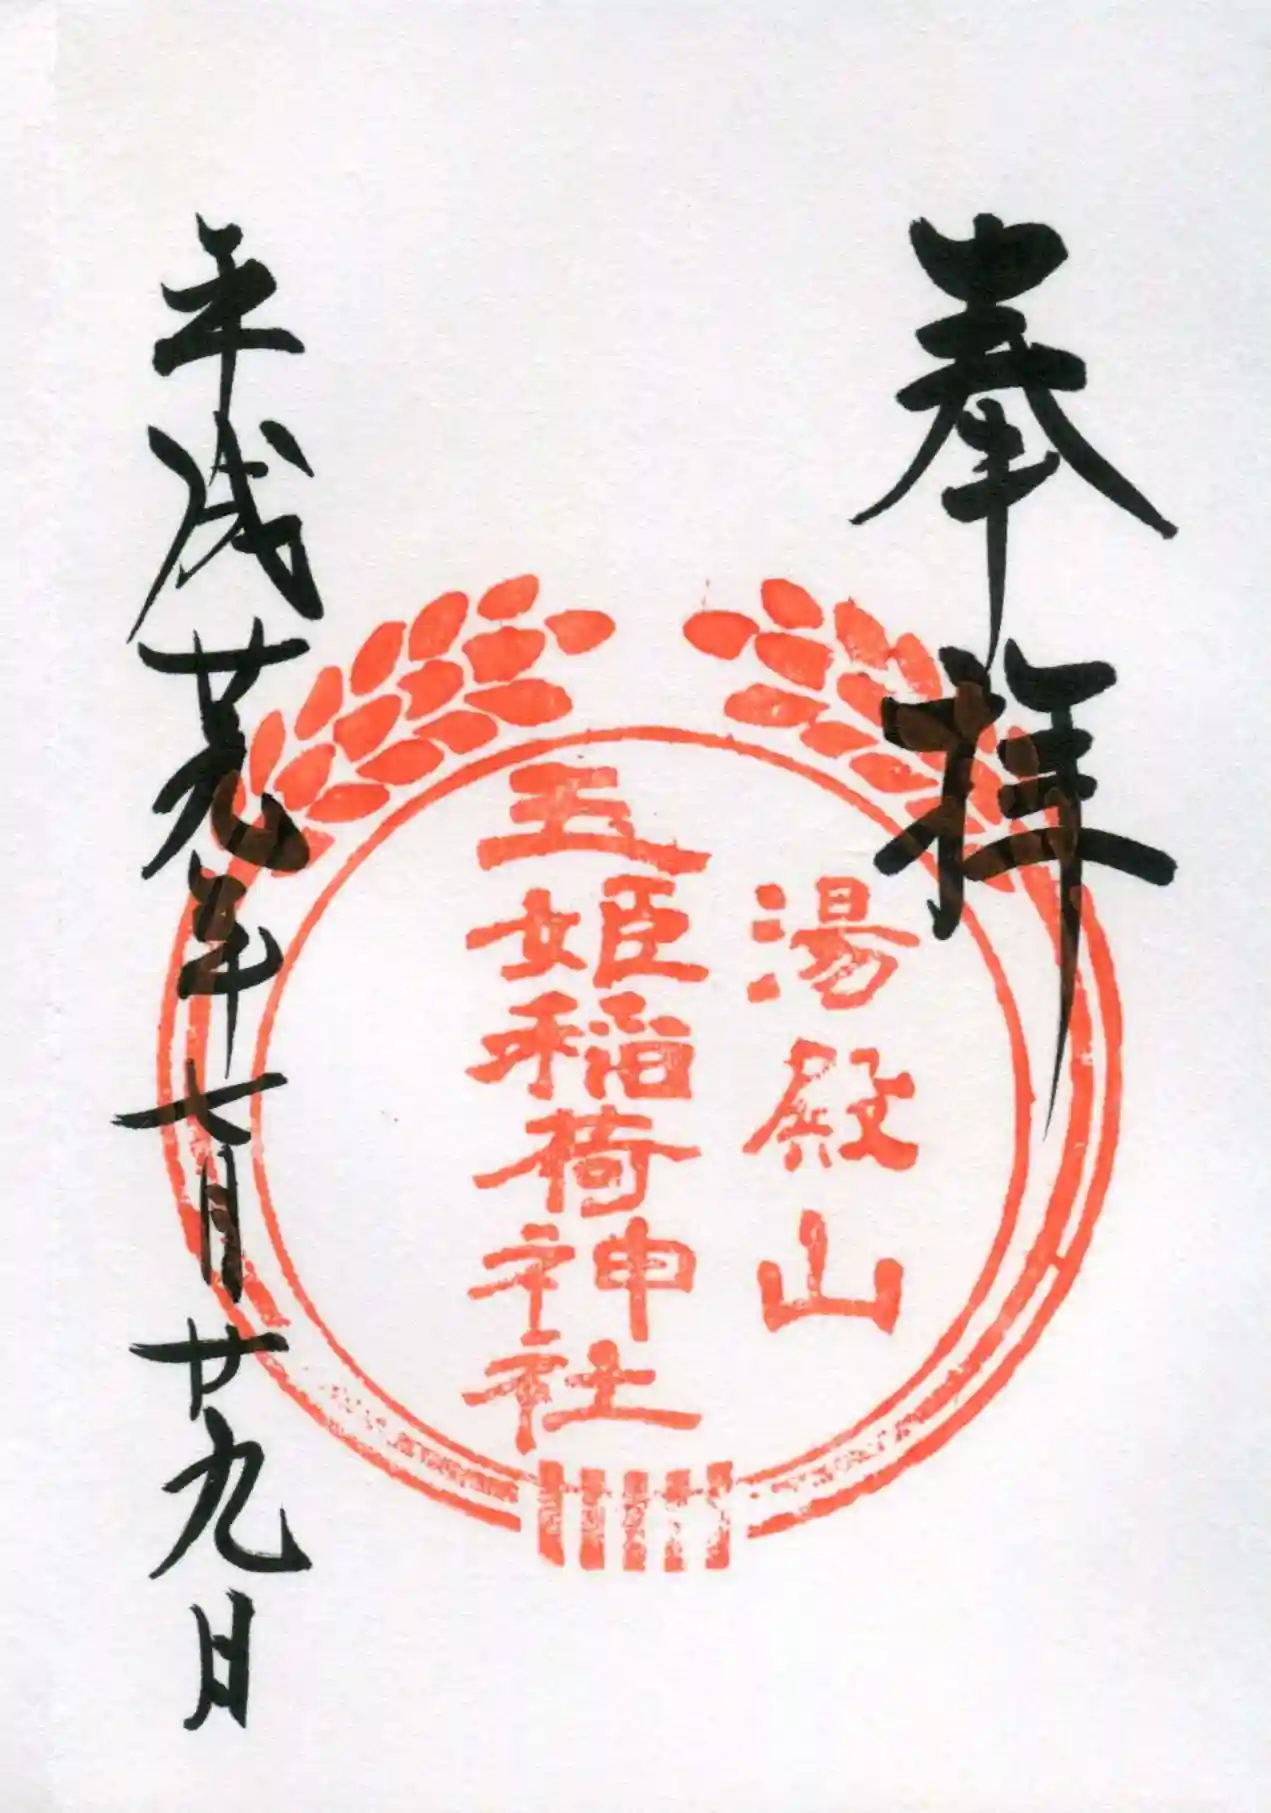 奉拝
湯殿山
玉姫稲荷神社
平成廿九年七月廿九日